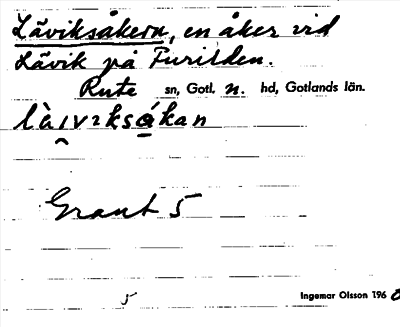 Läviksåkern, en åker vid
Lävik på Furilden.
Rute sn, Gotl. n. hd, Gotlands län.
là̯ıvıksåkan
Grant 5
5 Ingemar Olsson 196